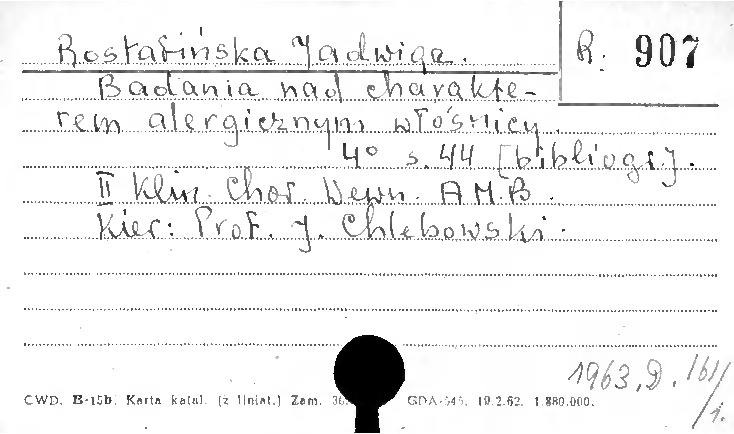 Rostafińska Jadwiga.
R. 907
Badania nad charakte-
rem alergicznym włośnicy.
4° s. 44 [bibliogr].
II Klin. Chor. Wewn. A.M.B.
Kier: Prof. J. Chlebowski.
1963.D.161/1.
CWD. B-15b. Karta katal. (z liniat.) Zam. 36 GDA-545. 19.2.62. 1.880.000.